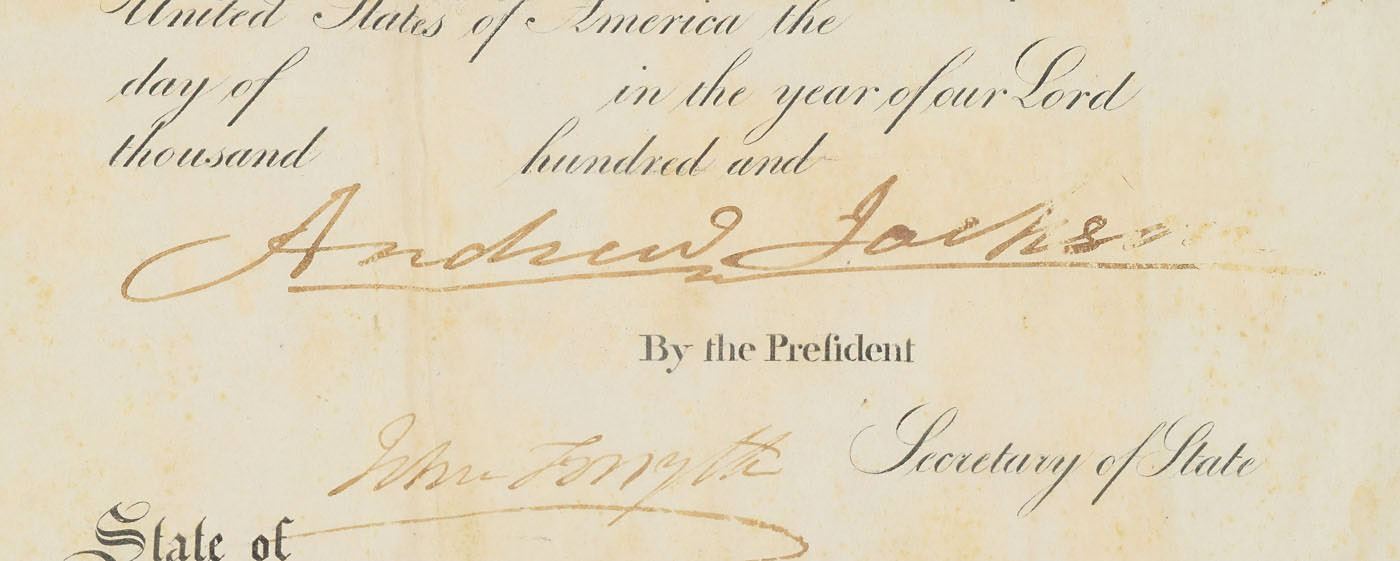 United States of America the
day of in the year of our Lord
thousand hundred and
Andrew Jackson
By the Preſident
John Forsyth Secretary of State
State of